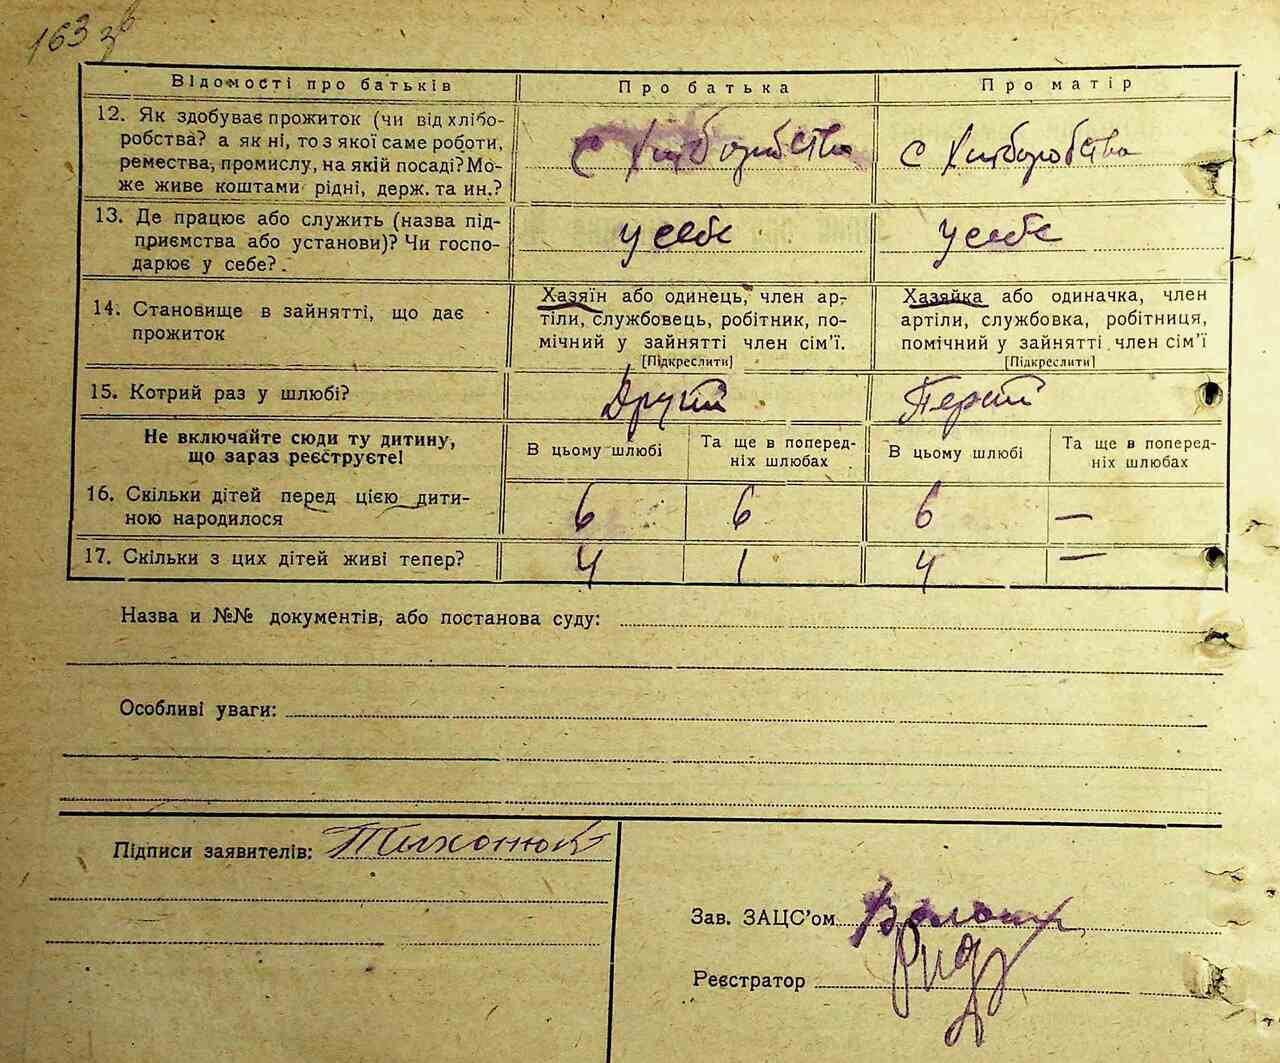 163 зв
Відомості про батьків
Про батька
Про матір
12. Як здобуває прожиток (чи від хлібо-
робства? а як ні, то з якої саме роботи,
ремества, промислу, на якій посаді? Мо-
же живе коштами рідні, держ. та ин.?
с Хліборобства
с Хліборобства
13. Де працює або служить (назва під-
приємства або установи)? Чи госпо-
дарює у себе?
у себе
у себе
14. Становище в зайнятті, що дає
прожиток
Хазяїн або одинець, член ар-
тіли, службовець, робітник, по-
мічний у зайнятті член сім’ї.
[Підкреслити]
Хазяйка або одиначка, член
артіли, службовка, робітниця,
помічний у зайнятті член сім’ї
[Підкреслити]
15. Котрий раз у шлюбі?
Другий
Перший
Не включайте сюди ту дитину,
що зараз реєструєте!
В цьому шлюбі
Та ще в поперед-
ніх шлюбах
В цьому шлюбі
Та ще в поперед-
ніх шлюбах
16. Скільки дітей перед цією дити-
ною народилося
6 6 6 —
17. Скільки з цих дітей живі тепер?
4 1 4 —
Назва и №№ документів, або постанова суду:
Особливі уваги:
Підписи заявителів: Тихонюк
Зав. ЗАЦС’ом
Реєстратор